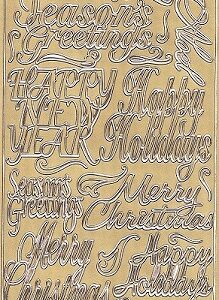 Season's
Greetings
HAPPY
NEW
YEAR
Happy
Holidays
Season's
Greetings
Merry
Christmas
Merry
Christmas
Happy
Holidays